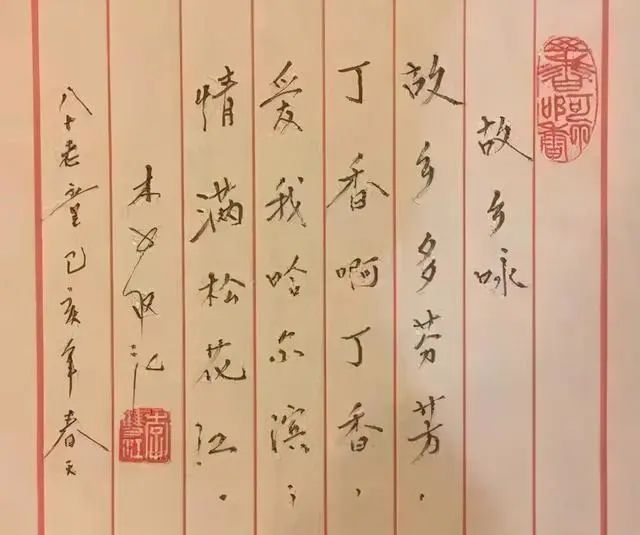 故乡咏
故乡多芬芳，
丁香啊丁香，
爱我哈尔滨，
情满松花江。
记
八十老童己亥年春天